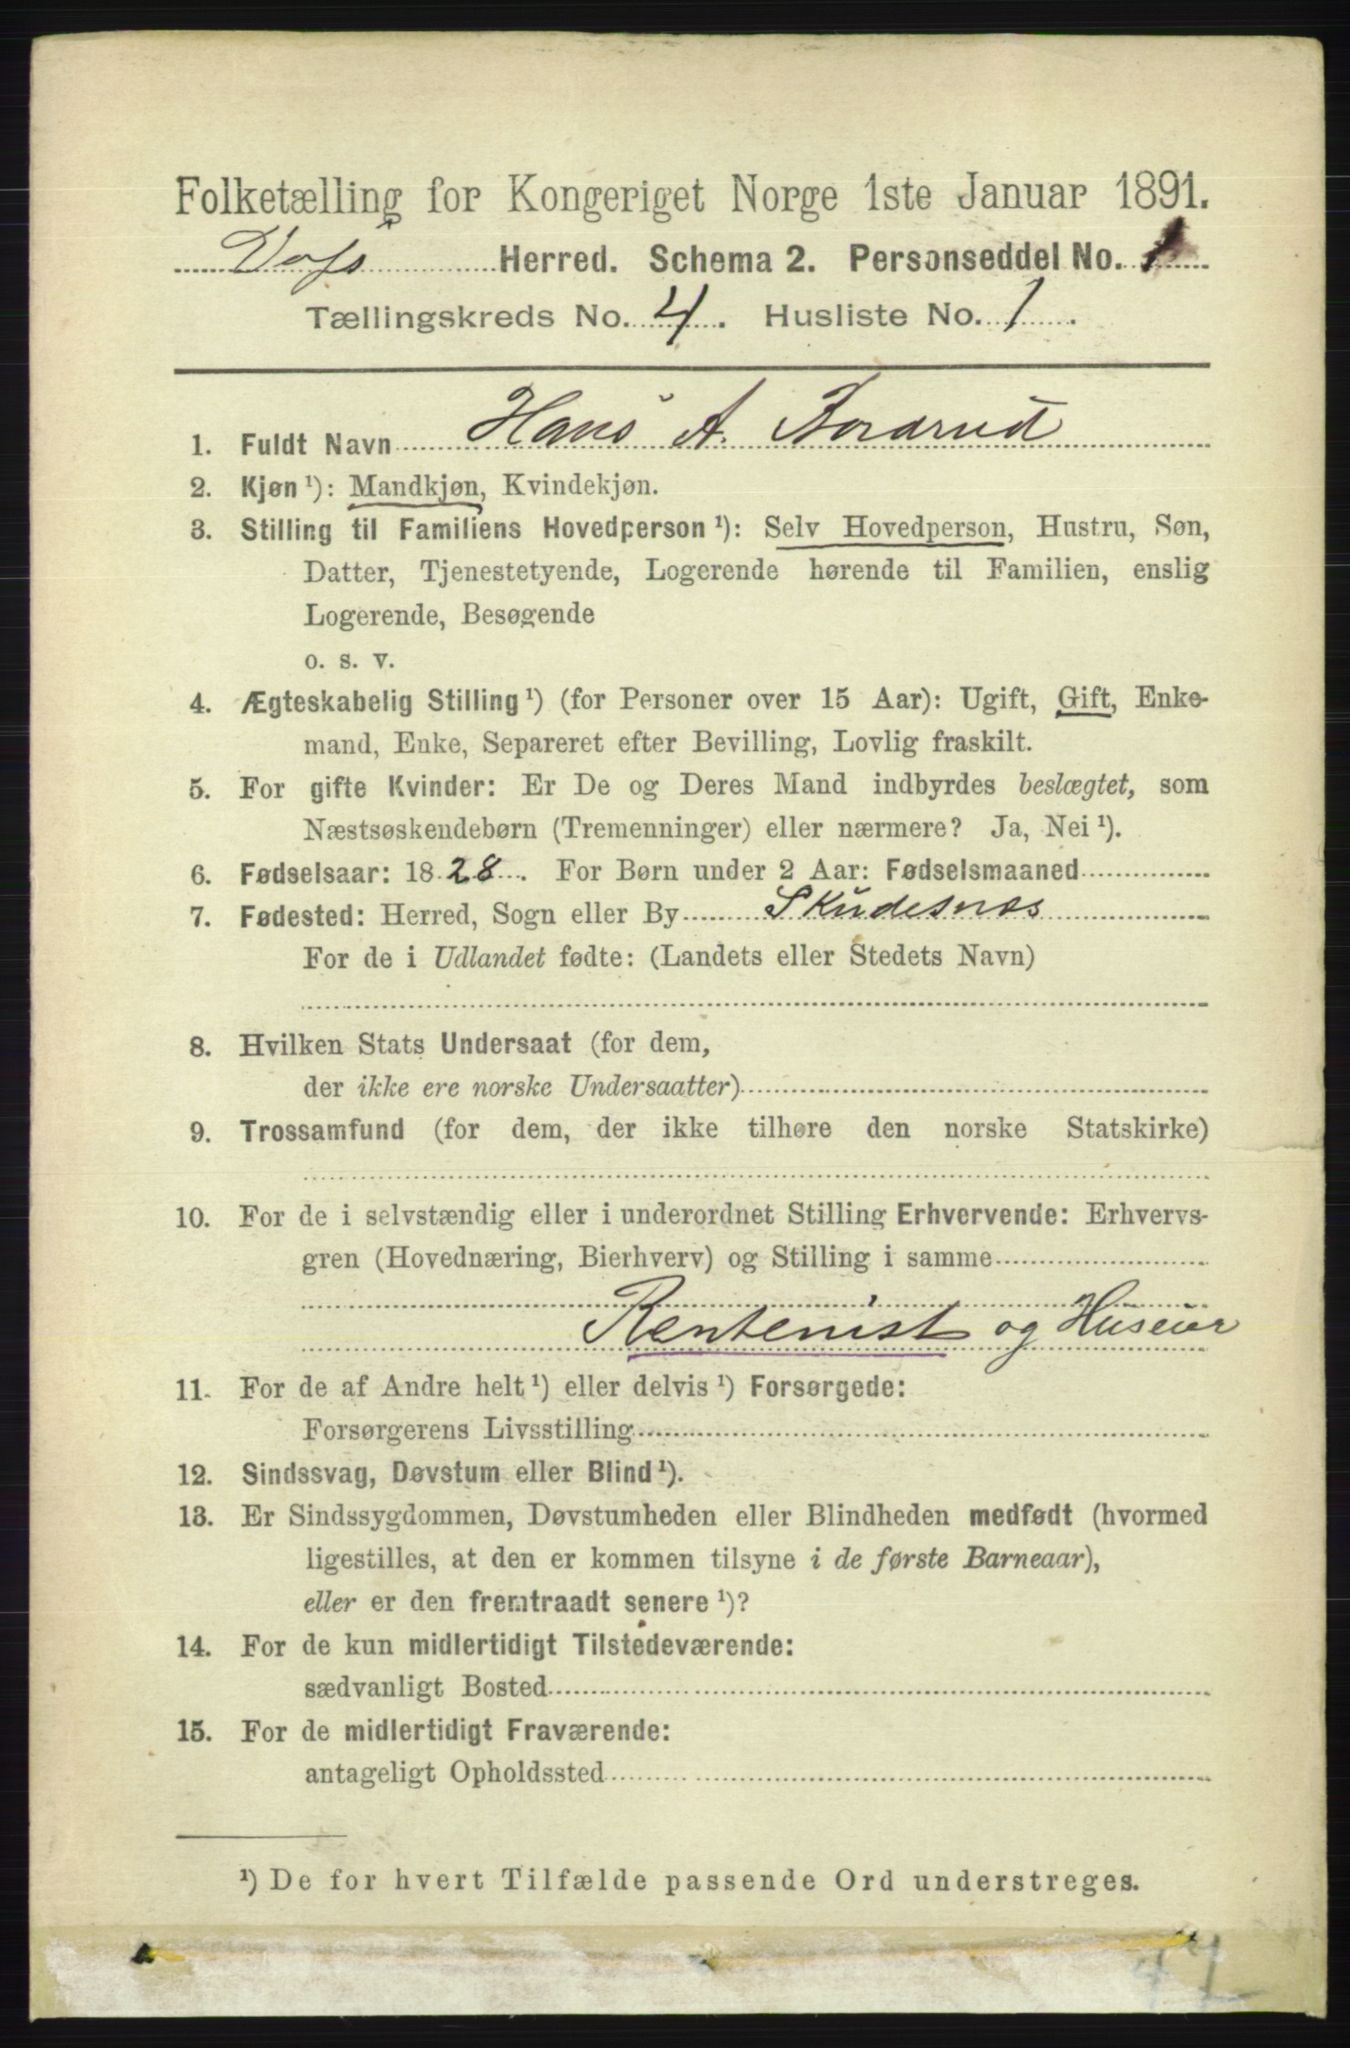 Folketælling for Kongeriget Norge 1ste Januar 1891.
Voss Herred. Schema 2. Personseddel No. 1
Tællingskreds No. 4. Husliste No. 1.
1. Fuldt Navn Hans A. Bordrud
2. Kjøn ¹): Mandkjøn, Kvindekjøn.
3. Stilling til Familiens Hovedperson ¹): Selv Hovedperson, Hustru, Søn,
Datter, Tjenestetyende, Logerende hørende til Familien, enslig
Logerende, Besøgende
o. s. v.
4. Ægteskabelig Stilling ¹) (for Personer over 15 Aar): Ugift, Gift, Enke-
mand, Enke, Separeret efter Bevilling, Lovlig fraskilt.
5. For gifte Kvinder: Er De og Deres Mand indbyrdes beslægtet, som
Næstsøskendebørn (Tremenninger) eller nærmere? Ja, Nei ¹).
6. Fødselsaar: 1828. For Børn under 2 Aar: Fødselsmaaned
7. Fødested: Herred, Sogn eller By Skudesnæs
For de i Udlandet fødte: (Landets eller Stedets Navn)
8. Hvilken Stats Undersaat (for dem,
der ikke ere norske Undersaatter)
9. Trossamfund (for dem, der ikke tilhøre den norske Statskirke)
10. For de i selvstændig eller i underordnet Stilling Erhvervende: Erhvervs-
gren (Hovednæring, Bierhverv) og Stilling i samme
Rentenist og Huseier
11. For de af Andre helt ¹) eller delvis ¹) Forsørgede:
Forsørgerens Livsstilling
12. Sindssvag, Døvstum eller Blind ¹).
13. Er Sindssygdommen, Døvstumheden eller Blindheden medfødt (hvormed
ligestilles, at den er kommen tilsyne i de første Barneaar),
eller er den fremtraadt senere ¹)?
14. For de kun midlertidigt Tilstedeværende:
sædvanligt Bosted
15. For de midlertidigt Fraværende:
antageligt Opholdssted
¹) De for hvert Tilfælde passende Ord understreges.